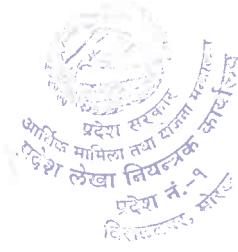 प्रदेश सरकार
आर्थिक मामिला तथा योजना मन्त्रालय
प्रदेश लेखा नियन्त्रक कार्यालय
प्रदेश नं.-१
विराटनगर, मोरङ